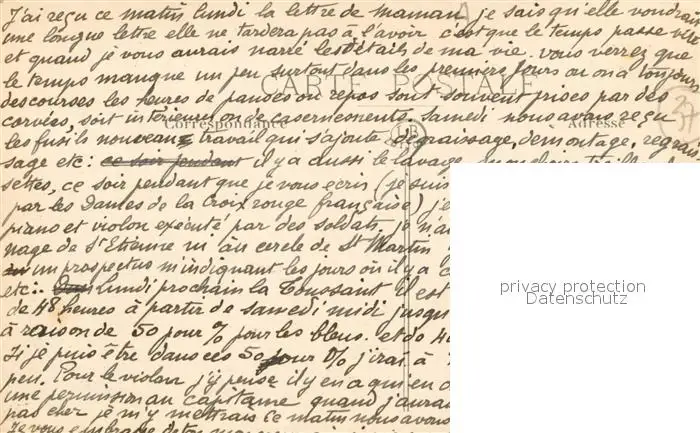 J'ai reçu ce matin lundi la lettre de maman, je sais qu'elle voudrait
une longue lettre elle ne tardera pas à l'avoir c'est que le temps passe vite
et quand je vous aurais narré les détails de ma vie. vous verrez que
le temps manque un peu surtout dans les premiers jours ou on a toujours
CARTE POSTALE
des courses les heures de pauses ou repos sont souvent prises par des
corvées, soit intérieur ou de casernements. Samedi nous avons reçu
Correspondance
Adresse
les fusils nouveau travail qui s'ajoute, graissage, démontage, regrais
sage etc: ce soir pendant il y a aussi le lavage,
settes, ce soir pendant que je vous écris (je suis
par les Dames de la Croix rouge française) j'e
piano et violon exécuté par des soldats. je n'a
nage de St Etienne ni au cercle de St Martin
un prospectus m'indiquant les jours où il y a c
etc: Lundi prochain la Toussaint il est
de 48 heures à partir de samedi midi jusqu
à raison de 50 pour % pour les bleus. et de 4
Si je puis être dans ces 50 pour % j'irai à
peu. Pour le violon j'y pense il y en a qui en o
une permission au capitaine quand j'aurai
pas cher je m'y mettrais Ce matin nous avons
Je vous embrasse
privacy protection
Datenschutz